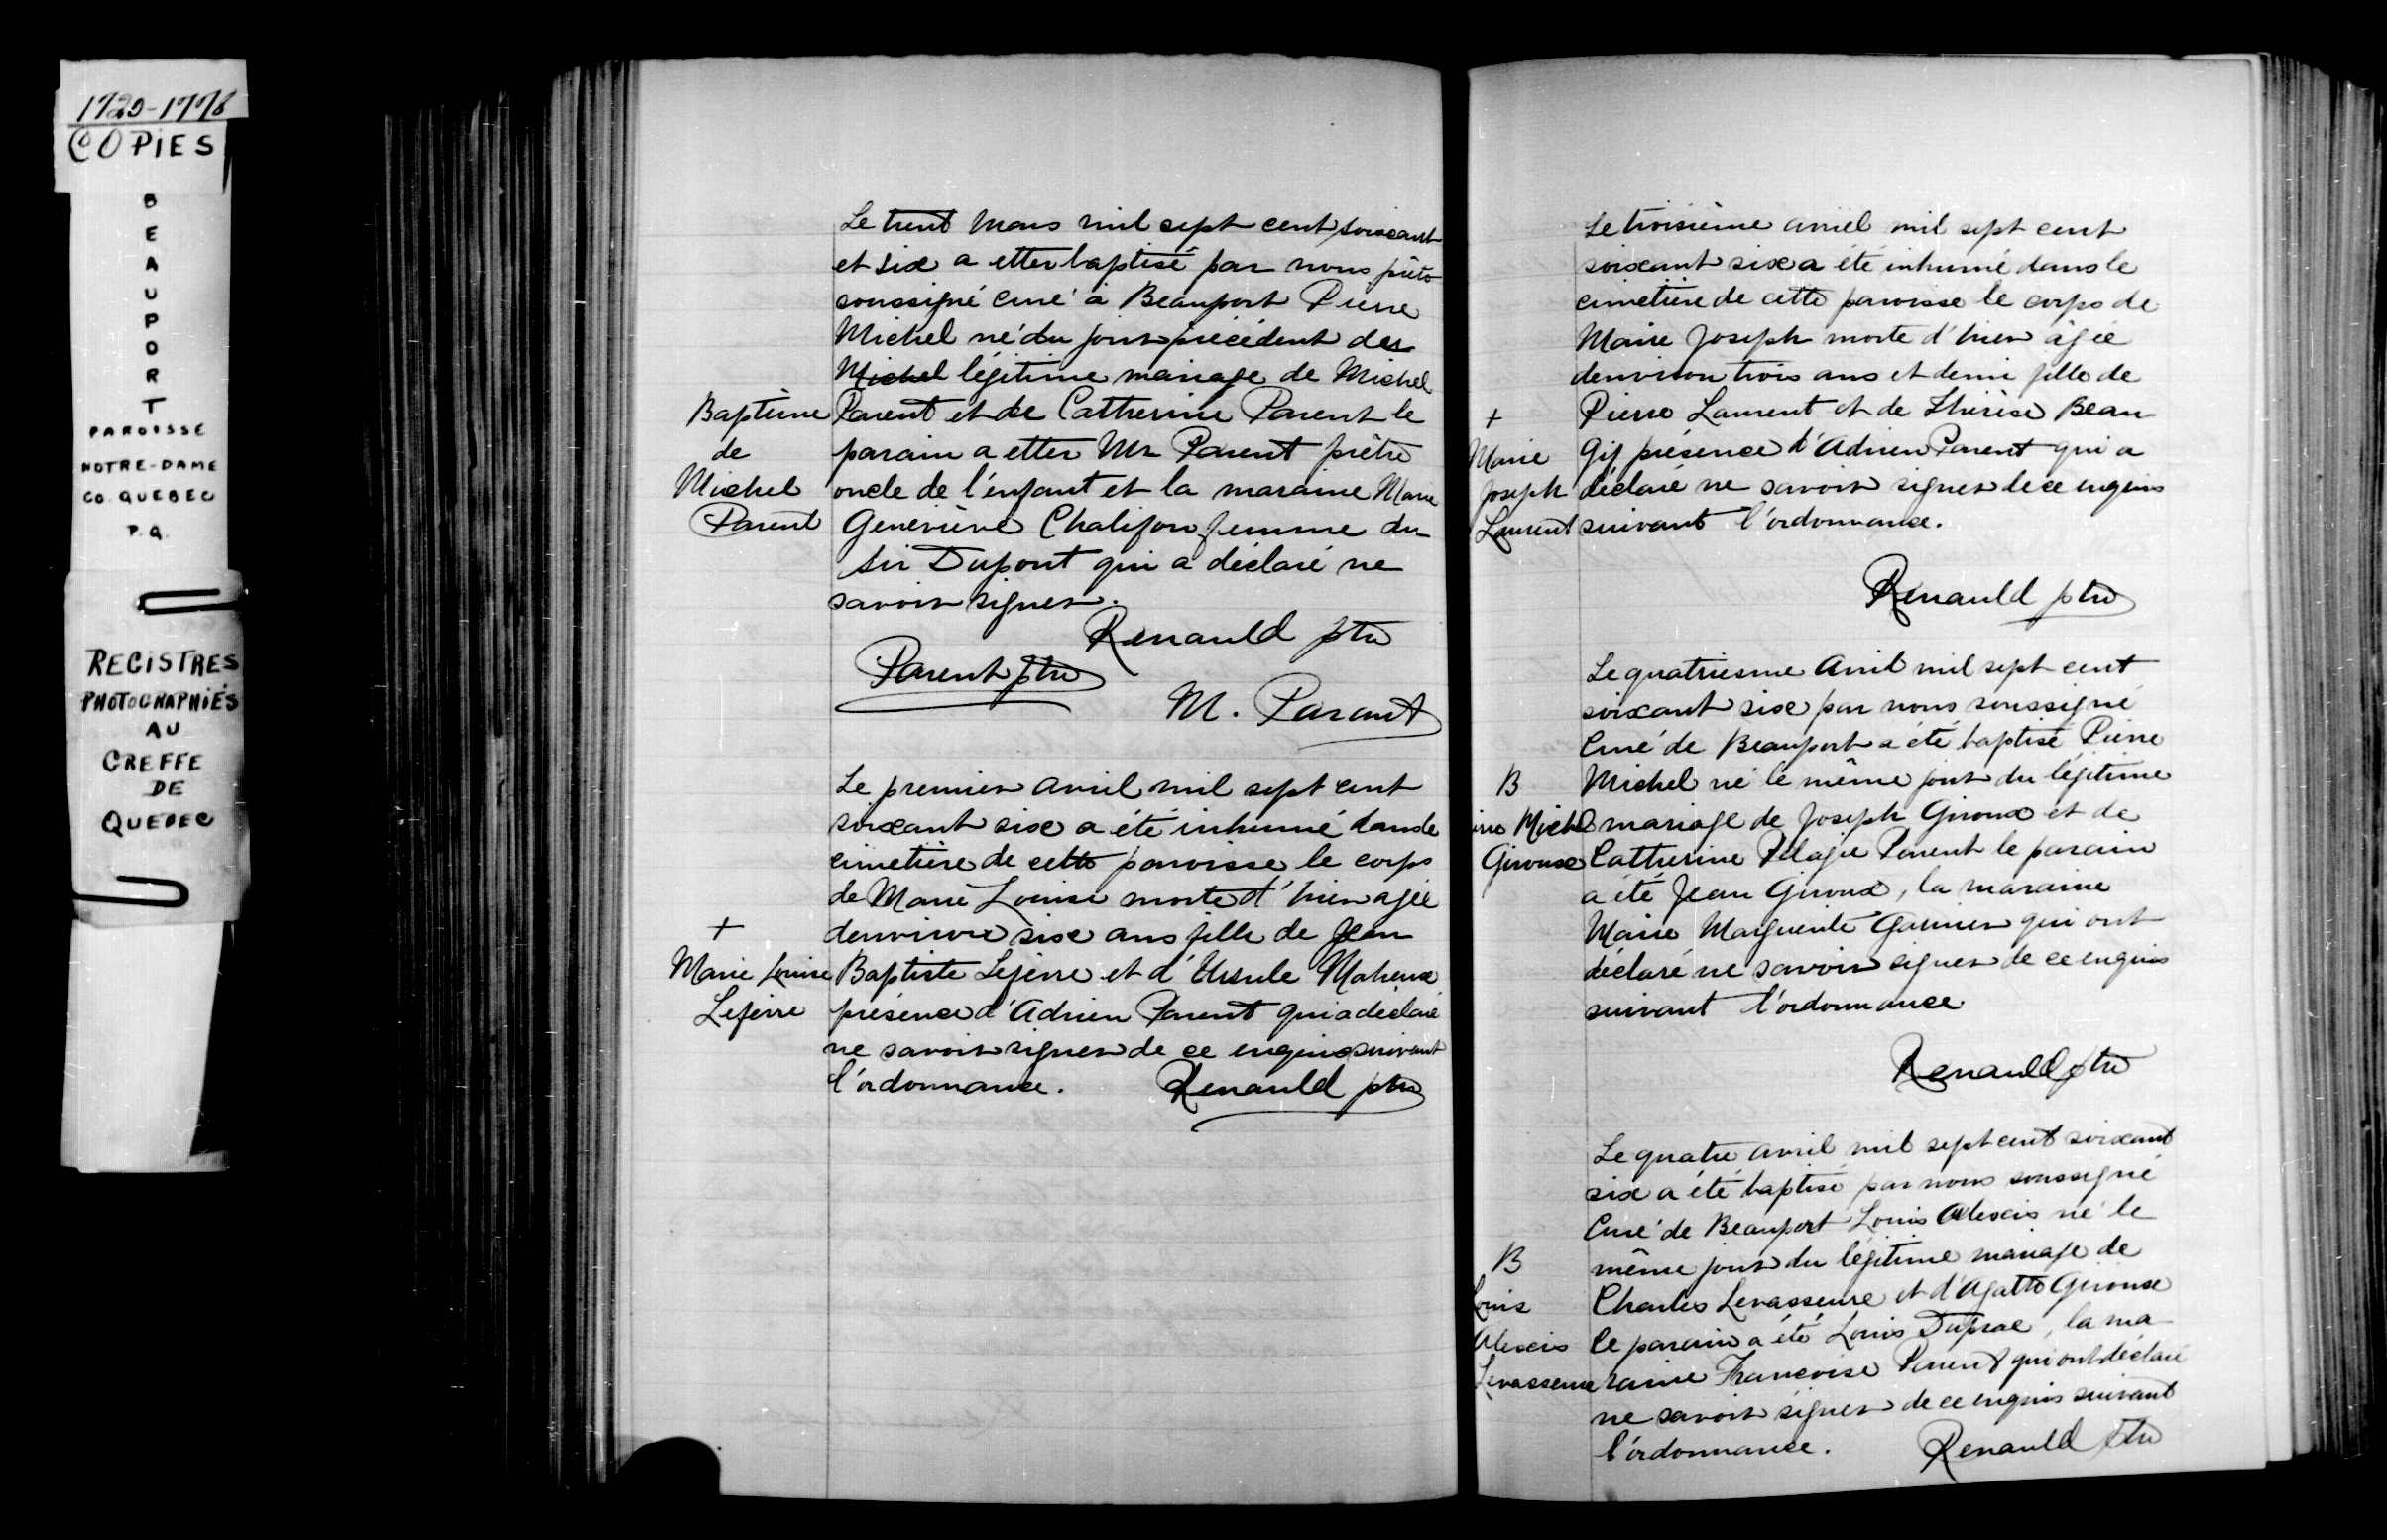 1720-1778
COPIES
BEAUPORT
PAROISSE
NOTRE-DAME
CO. QUEBEC
P.Q.
REGISTRES
PHOTOGRAPHIÉS
AU
GREFFE
DE
QUEBEC
Le trent Mars mil sept cent soixant
et six a etter baptisé par nous prêtre
soussigné curé à Beauport Pierre
Michel né du jour précédent des
Michel légitime mariage de Michel
Baptême Parent et de Catherine Parent le
de parain a etter Mr Parent prêtre
Michel oncle de l'enfant et la maraine Marie
Parent Geneviève Chalifou femme du
Sir Dupont qui a déclaré ne
savoir signer.
Renauld ptre
Parent ptre
M. Parant
Le premier avril mil sept cent
soixant six a été inhumé dans le
cimetière de cette paroisse le corps
de Marie Louise morte d'hier agée
+ denviron six ans fille de Jean
Marie Louise Baptiste Lefevre et d'Ursule Maheux
Lefevre présence d'Adrien Parent qui a déclaré
ne savoir signer de ce enquis suivant
l'ordonnance. Renauld ptre
Le troisième avriel mil sept cent
soixant six a été inhumé dans le
cimetière de cette paroisse le corps de
Marie Joseph morte d'hier âgée
denviron trois ans et demi fille de
+ Pierre Laurent et de Thérèse Beau
Marie Gy présence d'Adrien Parent qui a
Joseph déclaré ne savoir signer de ce enquis
Laurent suivant l'ordonnance.
Renauld ptre
Le quatriesme Avril mil sept cent
soixant six par nous soussigné
Curé de Beauport a été baptisé Pierre
B Michel né le même jour du légitime
Michel mariage de Joseph Giroux et de
Giroux Catherine Pélagie Parent le parain
a été Jean Giroux, la maraine
Marie Marguerite Garnier qui ont
déclaré ne savoir signer de ce enquis
suivant l'ordonnance
Renauld ptre
Le quatre avril mil sept cent soixant
six a été baptisé par nous soussigné
Curé de Beauport Louis Alexis né le
B même jour du légitime mariage de
Louis Charles Levasseure et d'Agatte Giroux
Alexis le parain a été Louis Duprac, la ma
Levasseure raine Francoise Parent qui ont déclaré
ne savoir signer de ce enquis suivant
l'ordonnance. Renauld ptre